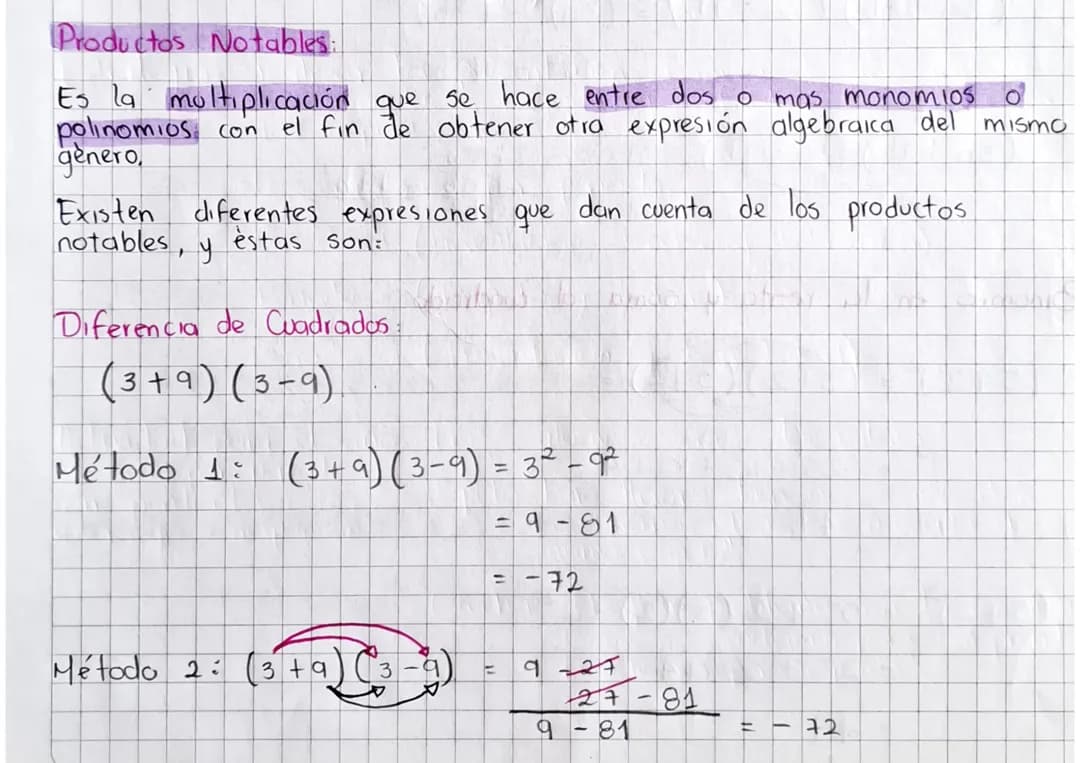 Productos Notables:
Es la multiplicación que se hace entre dos o mas monomios o
polinomios. con el fin de obtener otra expresión algebraica del mismo
gènero.
Existen diferentes expresiones que dan cuenta de los productos
notables, y èstas son:
Diferencia de Cuadrados:
(3+9)(3-9).
Método 1: (3+9)(3-9) = 3² - 9²
= 9 - 81
= - 72
Método 2: (3+9)(3-9) = 9 - 27
27 - 81
9 - 81 = - 72